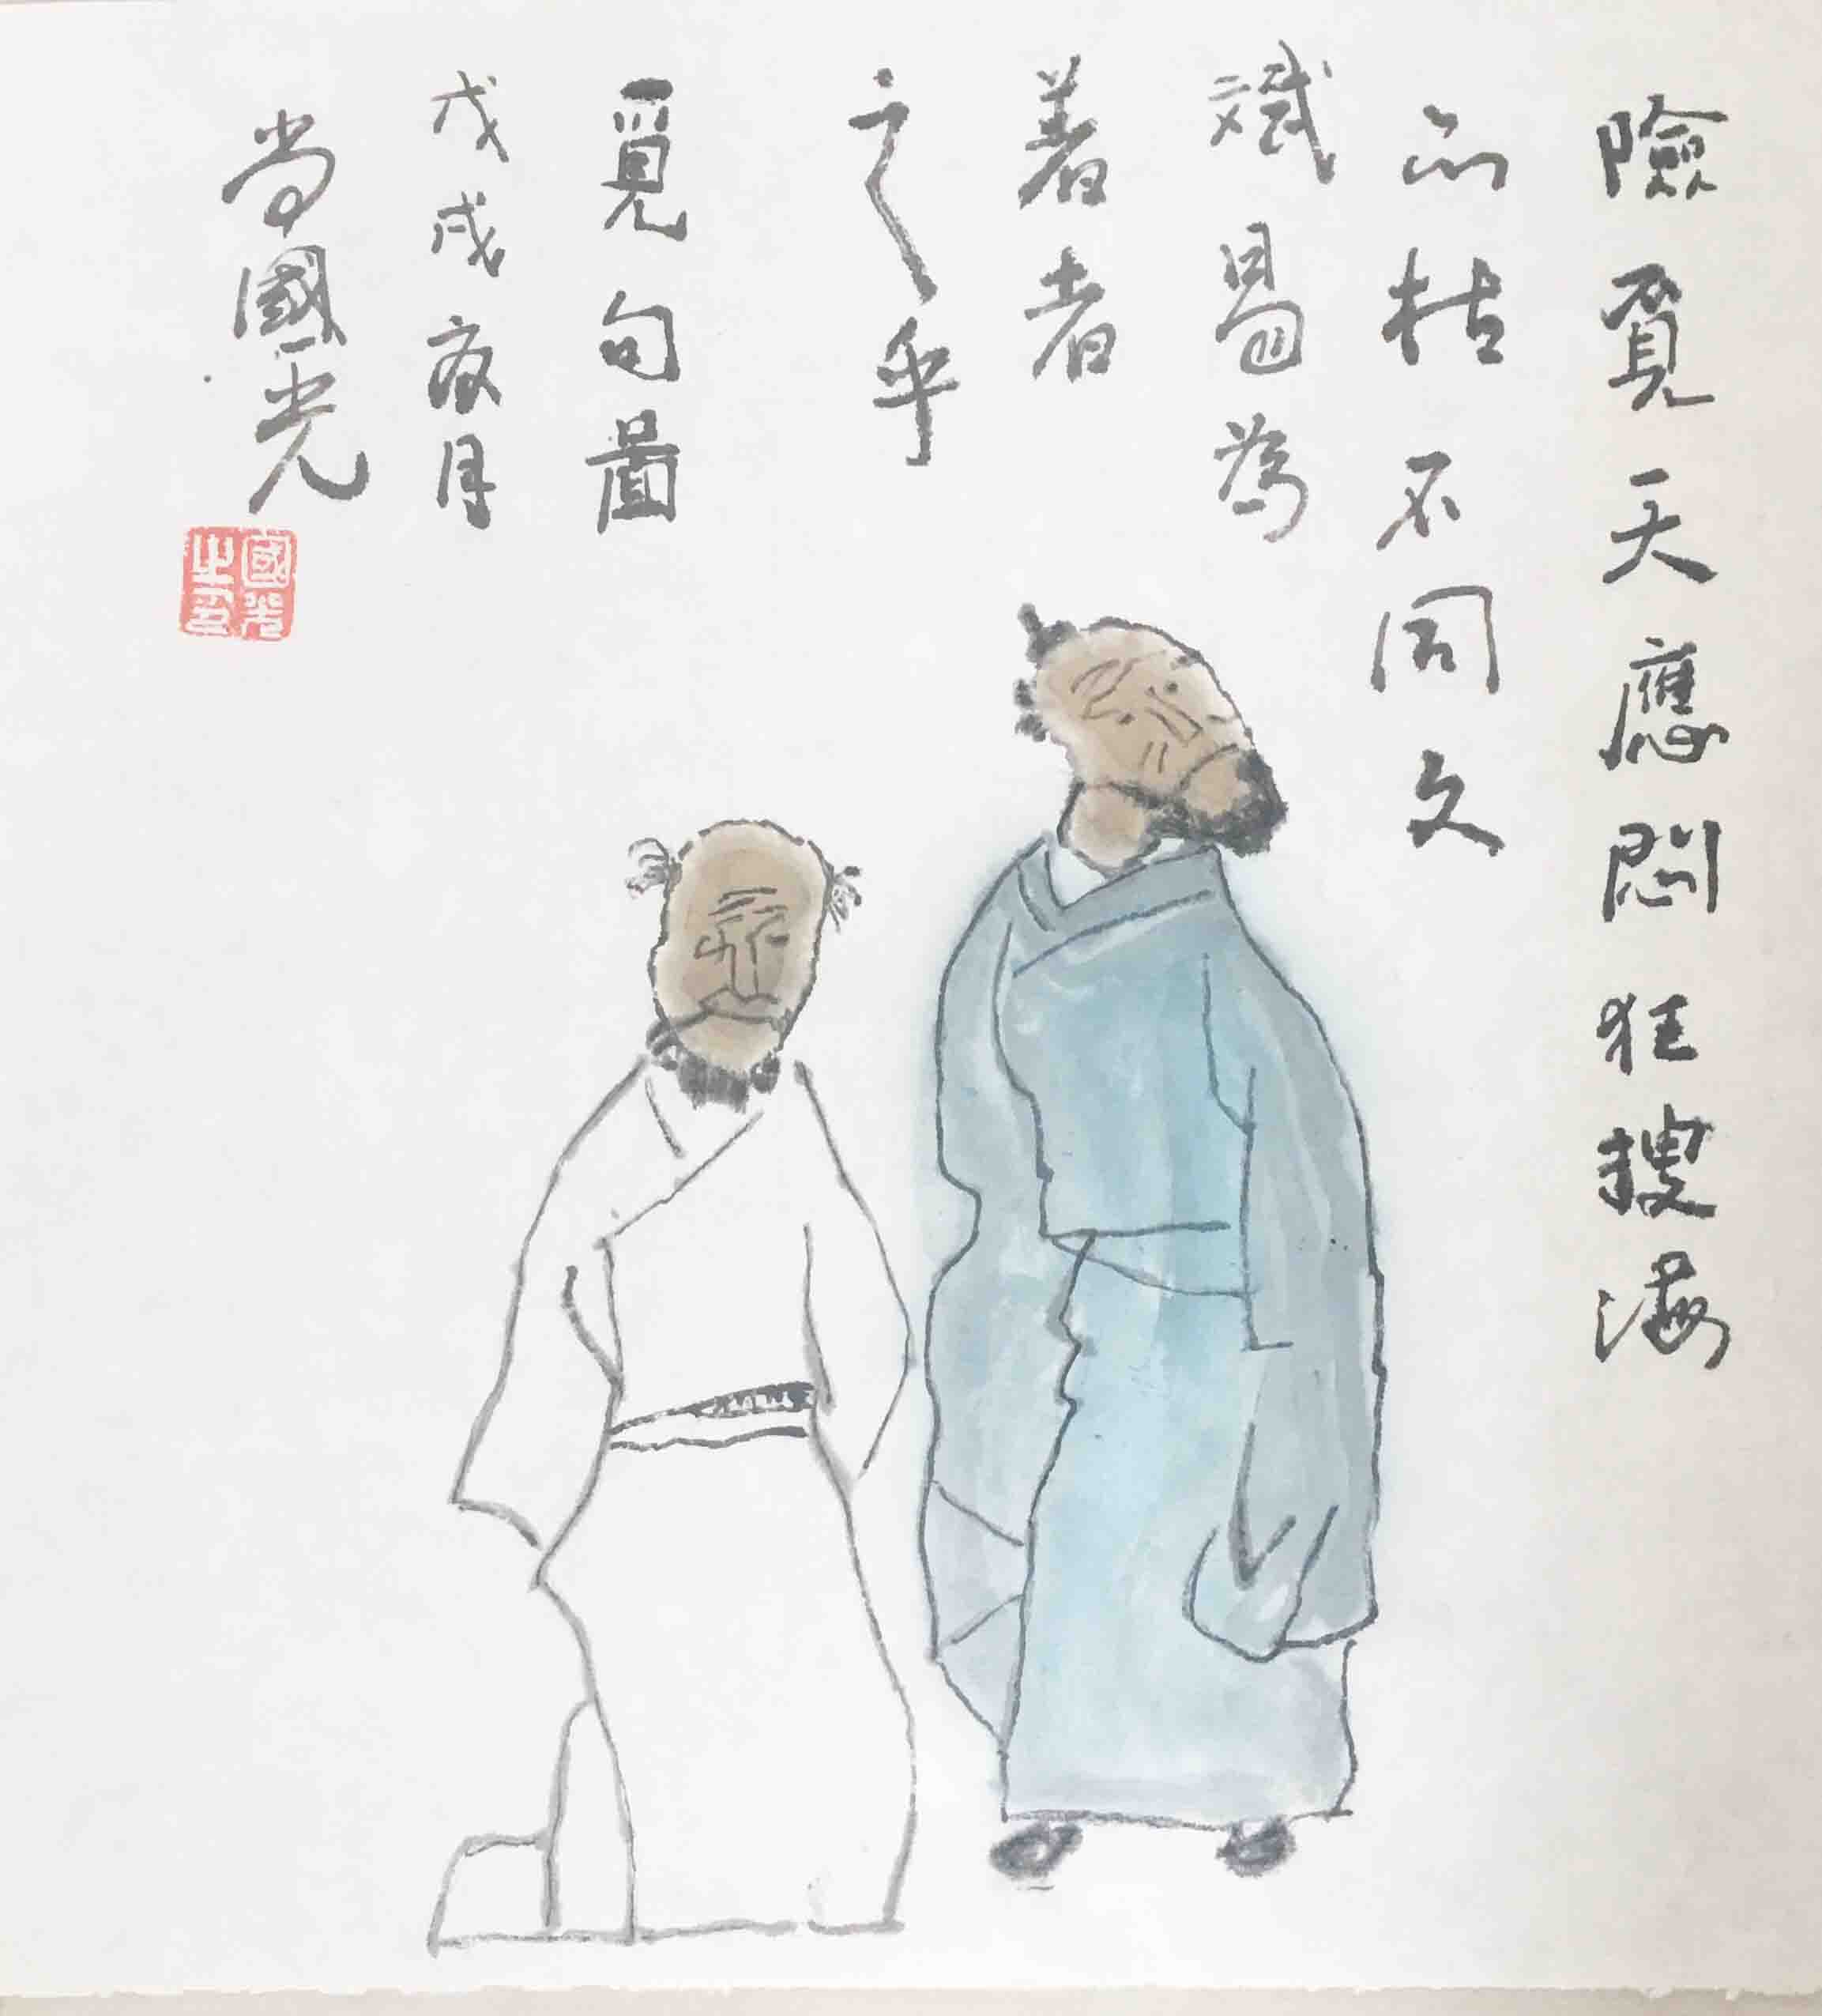 險覓天應悶狂搜海
亦枯不同文
賦易為
著者
之乎
覓句圖
戊戌 月
尚國光
國光
之印